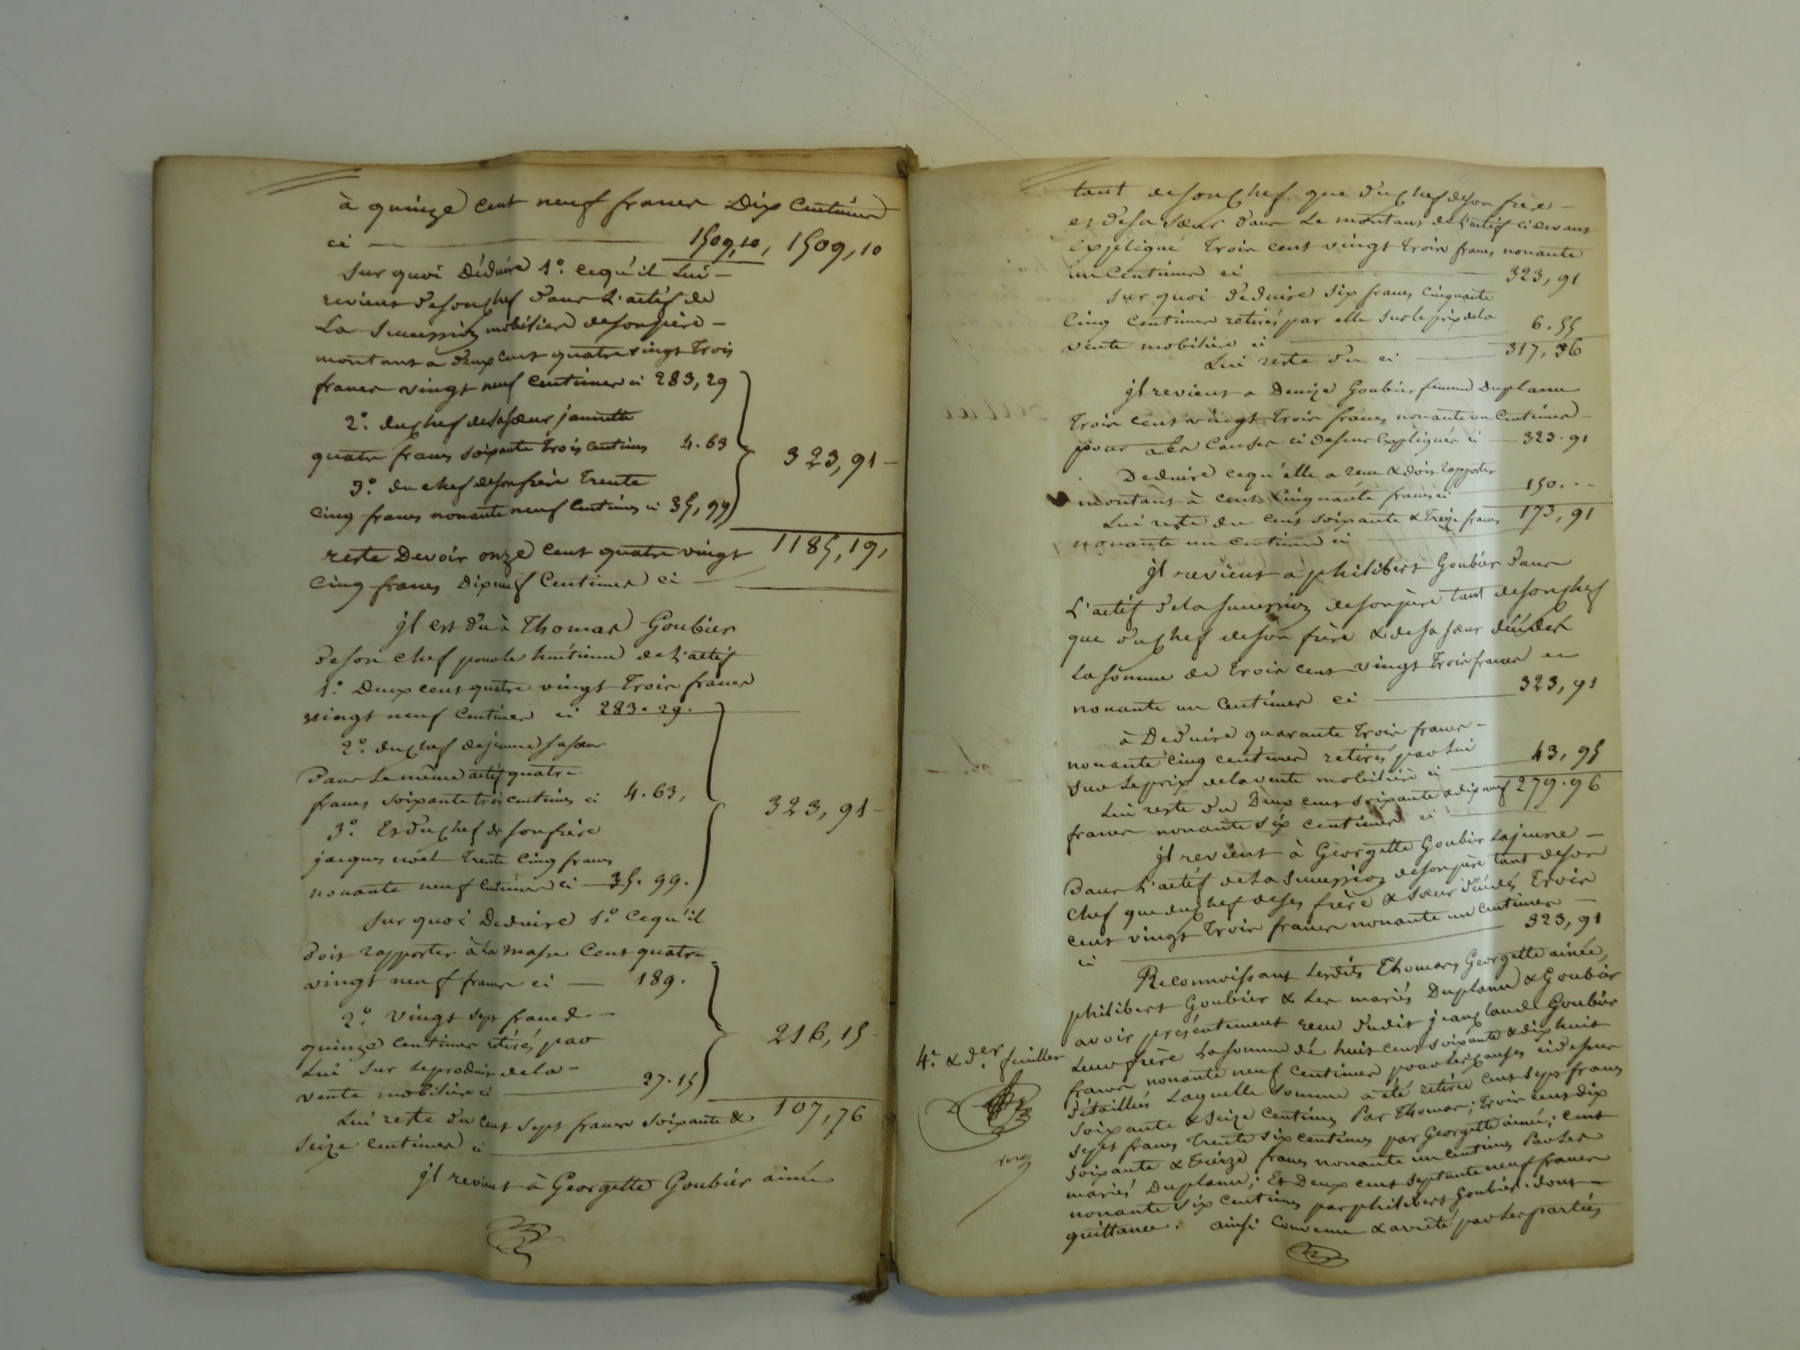 à quinze cent neuf francs Dix Centimes
ci 1509,10, 1509,10
Sur quoi Déduire 1°. cequ'il Lui
revient desonchef dans L'actif de
La Succession mobilière desonpère
montant à deux cent quatre vingt trois
francs vingt neuf Centimes ci 283,29
2°. duchef desasœur jannette
quatre francs soixante trois centimes 4.63
323,91
3°. du chef desonfrère trente
cinq francs nonante neuf Centimes ci 35,99
reste Devoir onze cent quatre vingt 1185,19,
cinq francs Dixneuf Centimes ci
jl est du à Thomas Goubier
deson chef pourle huitième de L'actif
1°. Deux cent quatre vingt trois francs
vingt neuf Centimes ci 283.29.
2°. duchef dejeanne sasœur
Dans Le même actif quatre
francs soixante trois centimes ci 4.63,
323,91
3°. Et du chef de sonfrère
jacques noël trente cinq francs
nonante neuf Centimes ci 35.99.
Sur quoi Deduire 1°. Cequ'il
doit rapporter àla masse Cent quatre
vingt neuf francs ci 189.
2°. Vingt sept francs
quinze centimes retirés par
216,15
Lui Sur Leproduit dela
vente mobilière ci 27.15
Lui reste du cent sept francs soixante & 107,76
Seize centimes ci
jl revient à Georgette Goubier ainée
tant desonchef que duchef deson frère
et desa sœur dans Le montant de L'actif cidevant
Expliqué trois cent vingt trois francs nonante
un Centimes ci 323,91
Sur quoi déduire Six francs Cinquante
Cinq centimes retirés par elle sur le prix dela
vente mobilière ci 6.55
Lui reste du ci 317,36
jl revient a Denize Goubier femme Duplanu
trois cent vingt trois francs nonante un Centimes
pour Les Causes ci dessus Expliquées ci 323.91
Deduire cequ'elle a reçu & doit rapporter
montant à cent Cinquante francs ci 150..
Lui reste du cent soixante & treize francs 173,91
nonante un centimes ci
jl revient a philibert Goubier dans
L'actif dela succession desonpère tant desonchef
que du chef deson frère & desa sœur décédés
La somme de trois cent vingt trois francs
nonante un Centimes ci 323,91
à Deduire quarante trois francs
nonante cinq centimes retirés par Lui
Sur Le prix dela vente mobilière ci 43,95
Lui reste du Deux cent soixante & dix neuf 279.96
francs nonante six centimes ci
jl revient à Georgette Goubier Lajeune
Dans L'actif dela Succession desonpère tant deson
chef que duchef deses frère & sœur décédés trois
cent vingt trois francs nonante un Centimes
ci 323,91
Reconnoissant Lesdits Thomas, Georgette ainée,
philibert Goubier & Les mariés Duplanu & Goubier
avoir présentement reçu dudit jean Claude Goubier
4e. & der. feuillet
Leur frère La somme de huit cent soixante & dix huit
francs nonante neuf Centimes pour Les causes cidessus
détaillées Laquelle somme a été retirée cent sept francs
soixante & seize centimes Par Thomas; trois cent dix
sept francs trente six centimes par Georgette ainée; cent
soixante & treize francs nonante un centimes Par Les
mariés Duplanu; Et Deux cent septante neuf francs
nonante six centimes par philibert Goubier. dont
quittance. ainsi Convenu & arrêté par Les parties